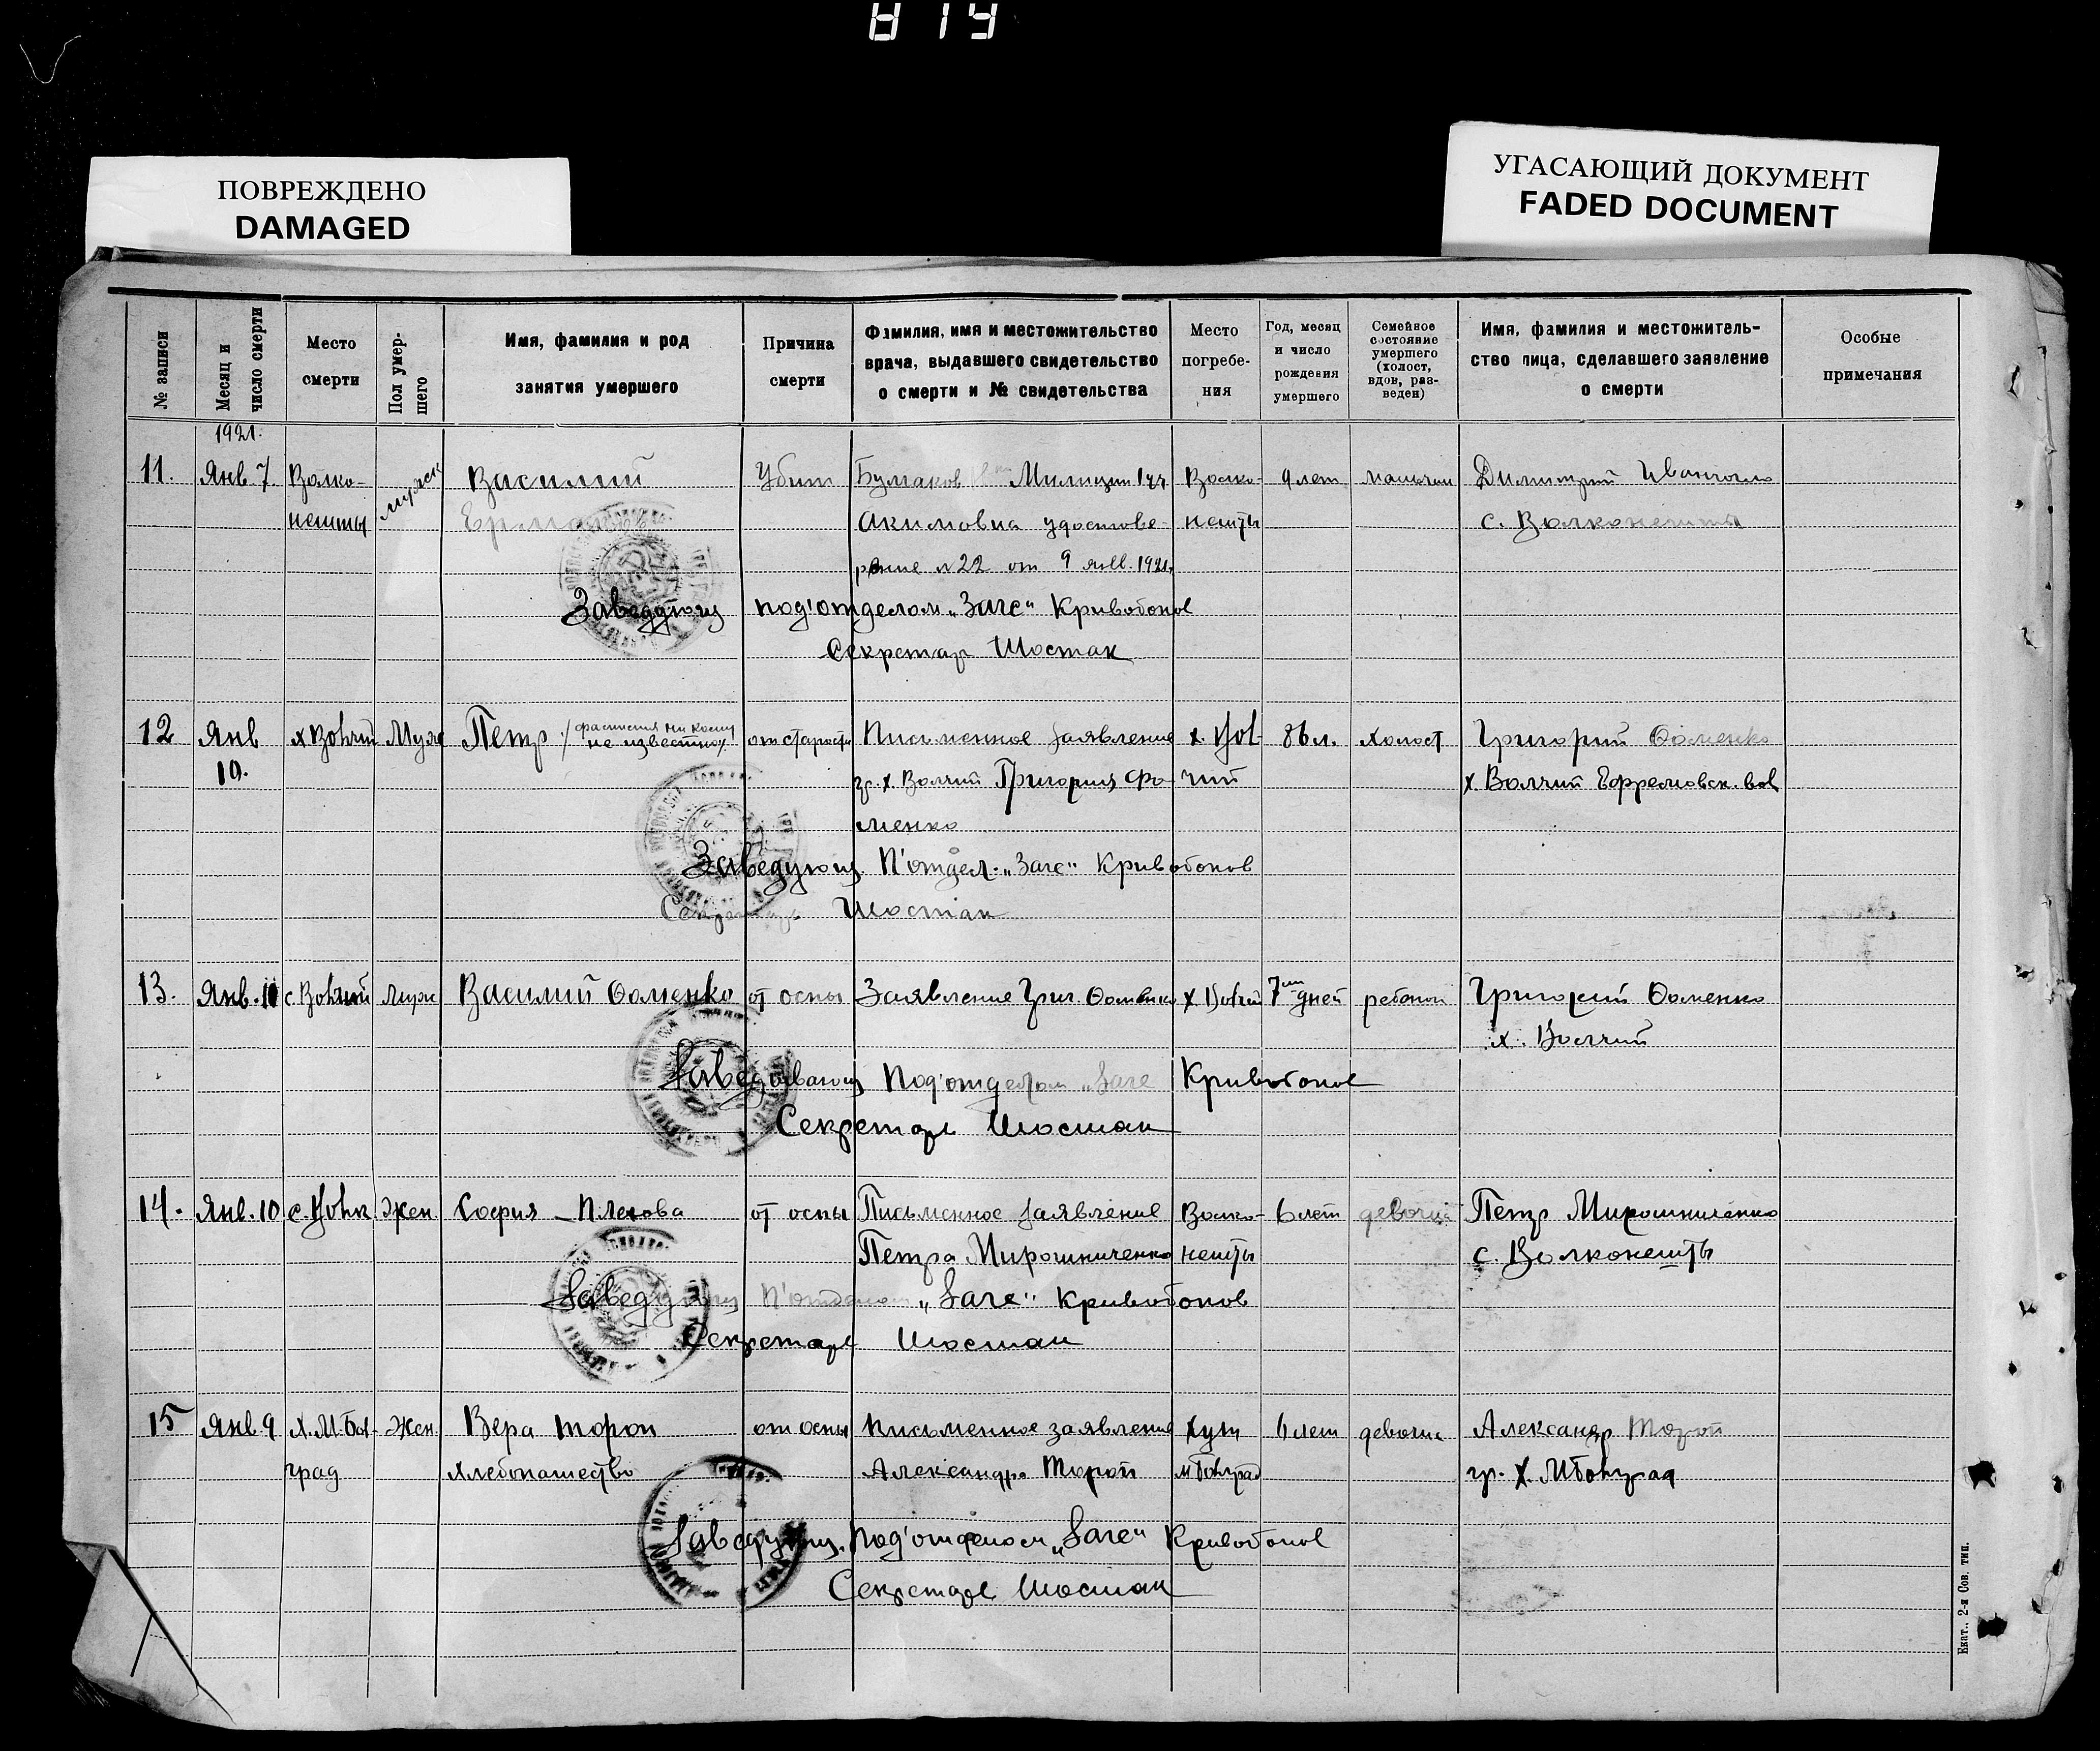 819
ПОВРЕЖДЕНО
DAMAGED
УГАСАЮЩИЙ ДОКУМЕНТ
FADED DOCUMENT
№ записи
Месяц и число смерти
Место смерти
Пол умер-
шего
Имя, фамилия и род
занятия умершего
Причина
смерти
Фамилия, имя и местожительство
врача, выдавшего свидетельство
о смерти и № свидетельства
Место
погребе-
ния
Год, месяц
и число
рождения
умершего
Семейное
состояние
умершего
(холост,
вдов, раз-
веден)
Имя, фамилия и местожитель-
ство лица, сделавшего заявление
о смерти
Особые
примечания
1921.
11. Янв 7. Волко- мужск Василий Убит Булгаков Милиции Волко- 9 лет мальчик Димитрий
нешты Акимовна удостове- нешты с. Волконешты
рение №22 от 9 янв. 1921.
Заведующ под'отделом „Загс" Кривобоков
Секретар Шостак
12 Янв х Волчий Муж Петр не известно от старости Письменное заявление х. Вол 86 л. холост Григорий Фоменко
10. гр. х. Волчий Григория Фо- чий х Волчий Ефремовск. вол
менко
Заведующ. П'отдел. „Загс" Кривобоков
Секретарь Шостак
13. Янв. 10 с. Волчий мужс Василий Фоменко от оспы Заявление Григ. Фоменко х Волчий 7 дней ребенок Григорий Фоменко
х. Волчий
Под'отделом „Загс Кривобоков
Секретарь Шостак
14. Янв. 10 с. Волк Жен. София от оспы Письменное заявление Волко- 6 лет девочка Петр Мирошниченко
Петра Мирошниченко нешты с. Волконешты
Заведующ П'отделом „Загс" Кривобоков
Секретарь Шостак
15 Янв. 9 х. М. Бол- Жен. Вера Мороп от оспы Письменное заявление Хут лет девочка Александр Мороп
град хлебопашество Александра Мороп М Болград гр. х. М Болград
Заведующ. Под'отделом „Загс" Кривобоков
Секретарь Шостак
Екат., 2-я Сов. тип.